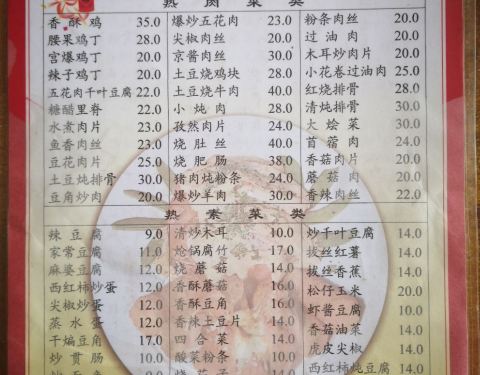 热 肉 菜 类
香 酥 鸡 35.0 爆炒五花肉 23.0 粉条肉丝 20.0
腰果鸡丁 28.0 尖椒肉丝 20.0 过 油 肉 20.0
宫爆鸡丁 20.0 京酱肉丝 30.0 木耳炒肉片 20.0
辣子鸡丁 20.0 土豆烧鸡块 28.0 小花卷过油肉 25.0
五花肉干叶豆腐 22.0 土豆烧牛肉 40.0 红烧排骨 28.0
糖醋里脊 22.0 小 炖 肉 28.0 清炖排骨 30.0
水煮肉片 23.0 孜然肉片 24.0 大 烩 菜 30.0
鱼香肉丝 23.0 烧 肚 丝 40.0 苜 蓿 肉 24.0
豆花肉片 25.0 烧 肥 肠 38.0 香菇肉片 20.0
土豆炖排骨 30.0 猪肉炖粉条 24.0 蘑 菇 肉 20.0
豆角炒肉 20.0 爆炒羊肉 30.0 香辣肉丝 22.0
热 素 菜 类
辣 豆 腐 9.0 清炒木耳 10.0 炒干叶豆腐 14.0
家常豆腐 11.0 炝锅腐竹 17.0 拔丝红薯 14.0
麻婆豆腐 12.0 烧 蘑 菇 14.0 拔丝香蕉 14.0
西红柿炒蛋 12.0 香酥蘑菇 16.0 松仔玉米 20.0
尖椒炒蛋 12.0 香酥豆角 16.0 虾酱豆腐 10.0
蒸 水 蛋 12.0 香辣土豆片 14.0 香菇油菜 14.0
干煸豆角 17.0 四 合 菜 14.0 虎皮尖椒 14.0
炒 贯 肠 10.0 酸菜粉条 10.0 西红柿炖豆腐 14.0